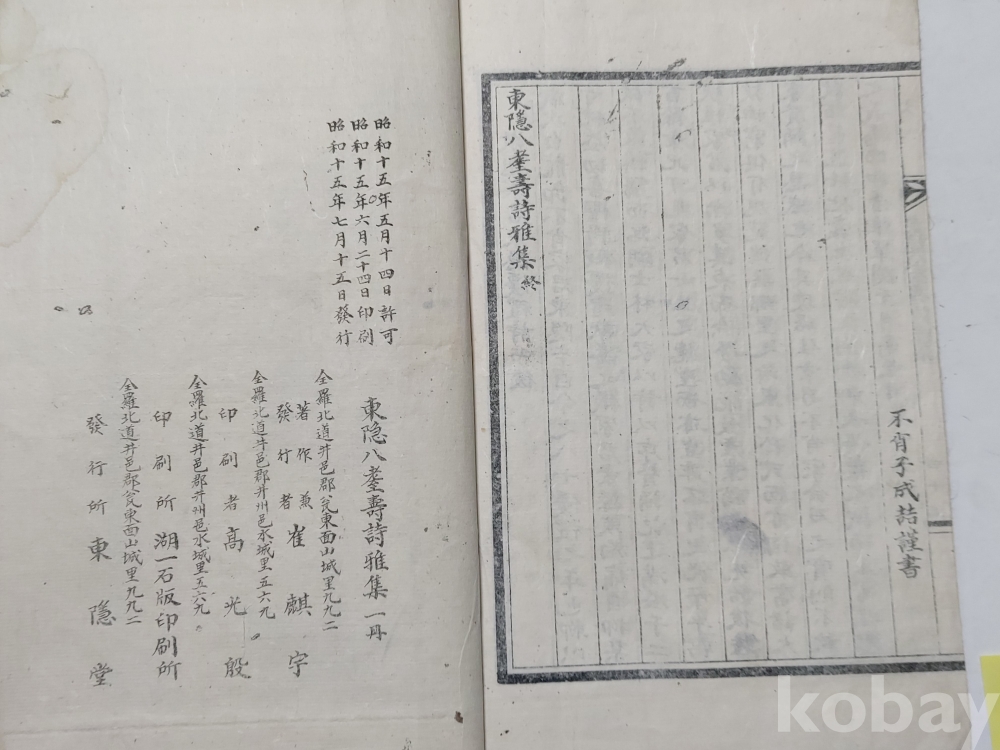 不肖子成喆謹書
東隱八耋壽詩雅集 終
昭和十五年五月十四日許可
昭和十五年六月二十四日印刷
昭和十五年七月十五日發行
東隐八耋壽詩雅集 一冊
全羅北道井邑郡瓮東面山城里九九二
著作兼發行者 崔麒宇
全羅北道井邑郡井州邑水城里五六九
印刷者 高光殷
全羅北道井邑郡井州邑水城里五六九
印刷所 湖一石版印刷所
全羅北道井邑郡瓮東面山城里九九二
發行所 東隱堂
kobay